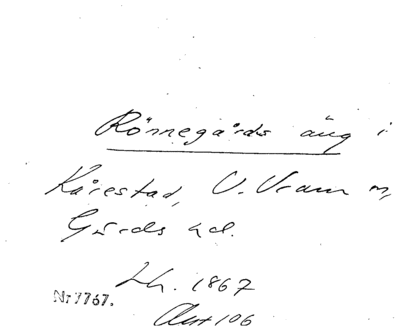 Rönnegårds äng i
Kårestad, V. Vram m,
Gärds hd.
Lh. 1867
Nr 7767.
Akt 106